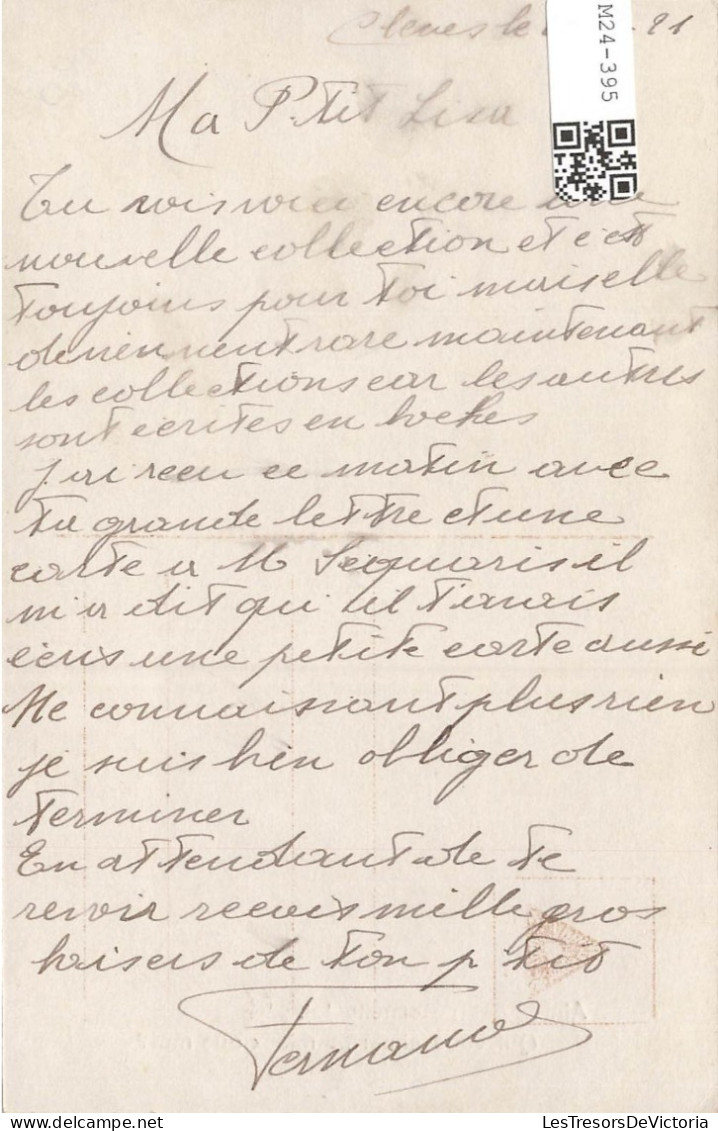 Cleves le 21
M24-395
Ma P.tit Lisa
Tu vois voici encore une
nouvelle collection et c'est
toujours pour toi mais elle
deviennent rare maintenant
les collections car les autres
sont écrites en boches
J'ai recu ce matin avec
ta grande lettre et une
carte a M Sequaris il
m'a dit qui il t'avais
écris une petite carte aussi
Ne connaissant plus rien
je suis bien obliger de
terminer
En attendant de te
revoir recois mille gros
baisers de ton p tit
Fernand
LesTresorsDeVictoria
delcampe.net